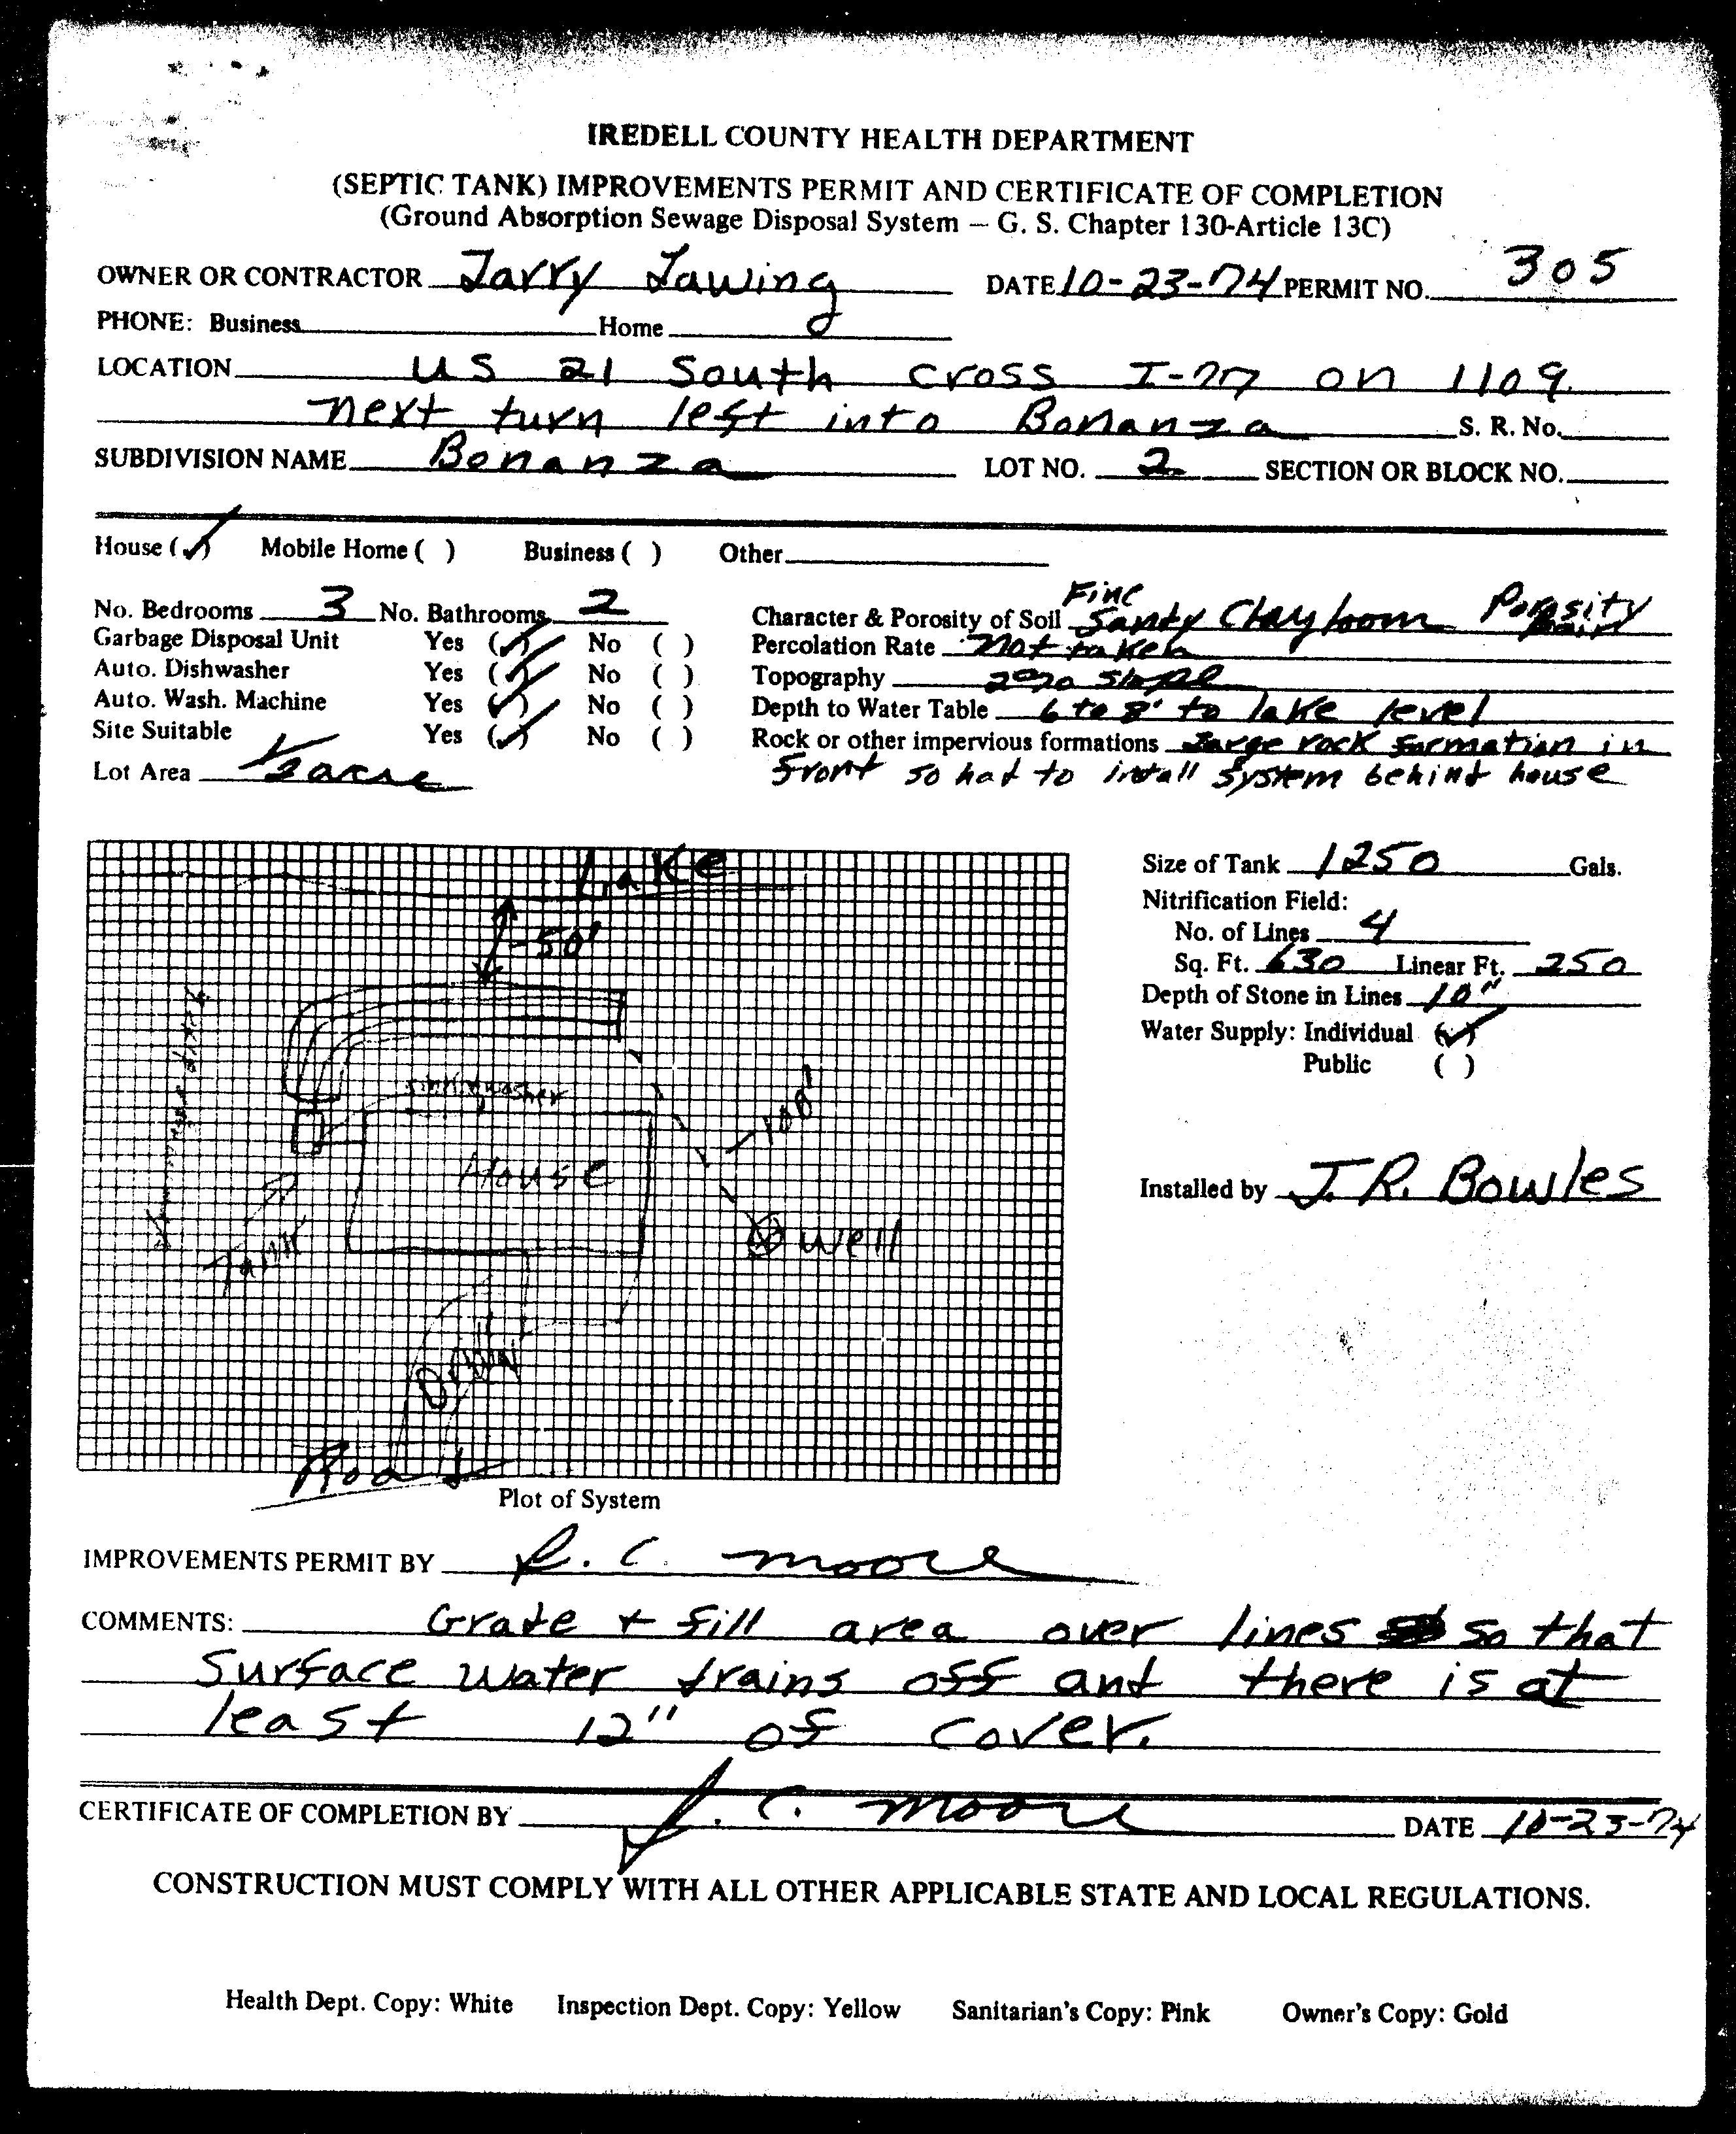 IREDELL COUNTY HEALTH DEPARTMENT
(SEPTIC TANK) IMPROVEMENTS PERMIT AND CERTIFICATE OF COMPLETION
(Ground Absorption Sewage Disposal System — G. S. Chapter 130-Article 13C)
OWNER OR CONTRACTOR Larry Lawing DATE 10-23-74 PERMIT NO. 305
PHONE: Business Home
LOCATION US 21 South cross I-77 on 1109
next turn left into Bonanza S. R. No.
SUBDIVISION NAME Bonanza LOT NO. 2 SECTION OR BLOCK NO.
House (✓) Mobile Home ( ) Business ( ) Other
No. Bedrooms 3 No. Bathrooms 2
Garbage Disposal Unit Yes (✓) No ( )
Auto. Dishwasher Yes (✓) No ( )
Auto. Wash. Machine Yes (✓) No ( )
Site Suitable Yes (✓) No ( )
Lot Area 1/2 acre
Character & Porosity of Soil Fine Sandy Clay loom Porosity
Percolation Rate Not taken
Topography slope
Depth to Water Table 6 to 8' to lake level
Rock or other impervious formations Large rock formation in
front so had to install system behind house
Lake
50'
House
100'
Tank
well
Road
Plot of System
Size of Tank 1250 Gals.
Nitrification Field:
No. of Lines 4
Sq. Ft. 630 Linear Ft. 250
Depth of Stone in Lines 10"
Water Supply: Individual (✓)
Public ( )
Installed by J. R. Bowles
IMPROVEMENTS PERMIT BY R. C. Moore
COMMENTS: Grade + fill area over lines so that
surface water drains off and there is at
least 12" of cover.
CERTIFICATE OF COMPLETION BY R. C. Moore DATE 10-23-74
CONSTRUCTION MUST COMPLY WITH ALL OTHER APPLICABLE STATE AND LOCAL REGULATIONS.
Health Dept. Copy: White Inspection Dept. Copy: Yellow Sanitarian's Copy: Pink Owner's Copy: Gold